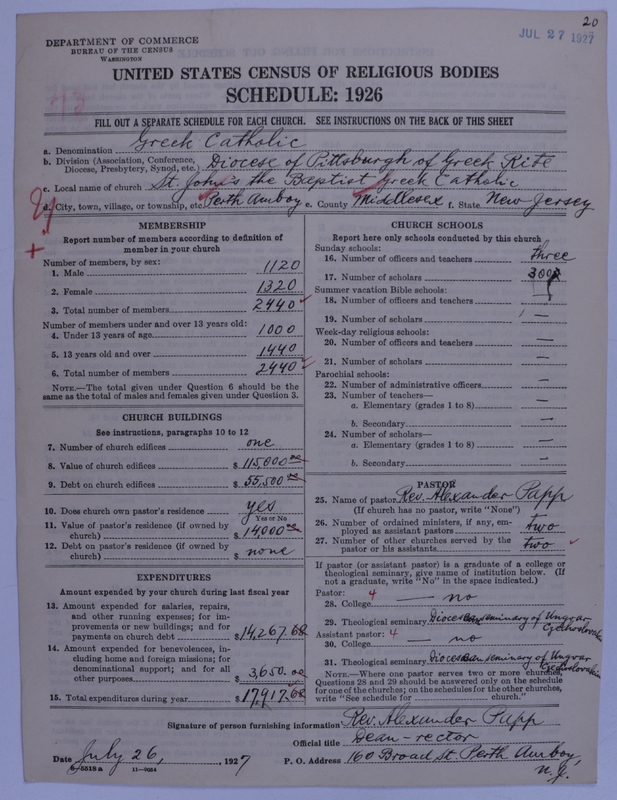 20
DEPARTMENT OF COMMERCE
BUREAU OF THE CENSUS
WASHINGTON
JUL 27 1927
UNITED STATES CENSUS OF RELIGIOUS BODIES
SCHEDULE: 1926
FILL OUT A SEPARATE SCHEDULE FOR EACH CHURCH. SEE INSTRUCTIONS ON THE BACK OF THIS SHEET
a. Denomination Greek Catholic
b. Division (Association, Conference, Diocese, Presbytery, Synod, etc.) Diocese of Pittsburgh of Greek Rite
c. Local name of church St. John's the Baptist Greek Catholic
d. City, town, village, or township, etc. Perth Amboy e. County Middlesex f. State New Jersey
MEMBERSHIP
Report number of members according to definition of
member in your church
Number of members, by sex:
1. Male 1120
2. Female 1320
3. Total number of members 2440
Number of members under and over 13 years old:
4. Under 13 years of age 1000
5. 13 years old and over 1440
6. Total number of members 2440
NOTE.—The total given under Question 6 should be the
same as the total of males and females given under Question 3.
CHURCH BUILDINGS
See instructions, paragraphs 10 to 12
7. Number of church edifices one
8. Value of church edifices $ 115,000 00
9. Debt on church edifices $ 55,500 00
10. Does church own pastor's residence yes
Yes or No
11. Value of pastor's residence (if owned by
church) $ 14000 00
12. Debt on pastor's residence (if owned by
church) $ none
EXPENDITURES
Amount expended by your church during last fiscal year
13. Amount expended for salaries, repairs,
and other running expenses; for im-
provements or new buildings; and for
payments on church debt $ 14,267.68
14. Amount expended for benevolences, in-
cluding home and foreign missions; for
denominational support; and for all
other purposes $ 3,650.00
15. Total expenditures during year $ 17,917.68
CHURCH SCHOOLS
Report here only schools conducted by this church
Sunday schools:
16. Number of officers and teachers three
17. Number of scholars
Summer vacation Bible schools:
18. Number of officers and teachers —
19. Number of scholars —
Week-day religious schools:
20. Number of officers and teachers —
21. Number of scholars —
Parochial schools:
22. Number of administrative officers —
23. Number of teachers—
a. Elementary (grades 1 to 8) —
b. Secondary —
24. Number of scholars—
a. Elementary (grades 1 to 8) —
b. Secondary —
PASTOR
25. Name of pastor Rev. Alexander Papp
(If church has no pastor, write "None")
26. Number of ordained ministers, if any, em-
ployed as assistant pastors two
27. Number of other churches served by the
pastor or his assistants two
If pastor (or assistant pastor) is a graduate of a college or
theological seminary, give name of institution below. (If
not a graduate, write "No" in the space indicated.)
Pastor: 4
28. College — no
29. Theological seminary Diocesan seminary of Ungvar Czechoslovakia
Assistant pastor: 4
30. College — no
31. Theological seminary Diocesan seminary of Ungvar Czechoslovakia
NOTE.—Where one pastor serves two or more churches,
Questions 28 and 29 should be answered only on the schedule
for one of the churches; on the schedules for the other churches,
write "See schedule for church."
Signature of person furnishing information Rev. Alexander Papp
Official title Dean-rector
Date July 26, 1927 P. O. Address 160 Broad St. Perth Amboy,
N.J.
8-5518 a 11-9064